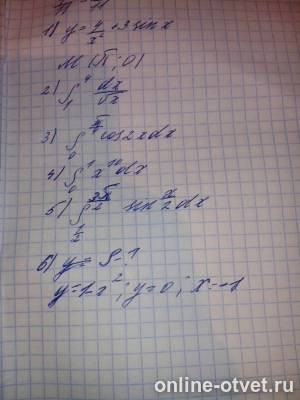 1) y = 4/x² + 3 sin x
M (π; 0)
2) ∫₁⁴ dx/√x
3) ∫₀^(π/4) cos 2x dx
4) ∫₀¹ x¹⁰ dx
5) sin x/2 dx
6) y = S-?
y = 1-x²; y = 0; x = -1
online-otvet.ru